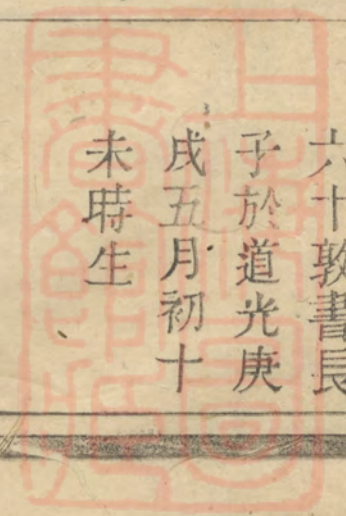 六十敦書長
子於道光庚
戌五月初十
未時生